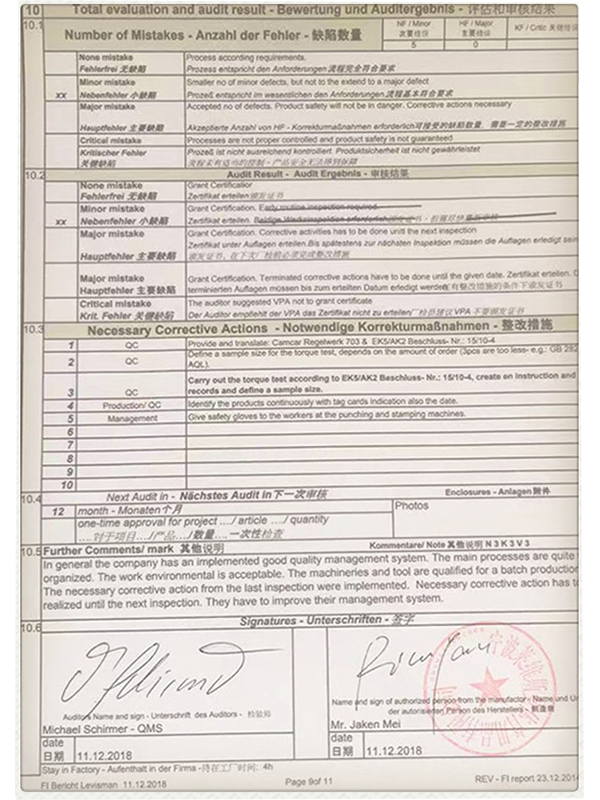 10 Total evaluation and audit result - Bewertung und Auditergebnis - 评估和审核结果
10.1 Number of Mistakes - Anzahl der Fehler - 缺陷数量
NF / Minor 次要错误 HF / Major 主要错误 KF / Critic 关键错误
5 0
None mistake Process according requirements.
Fehlerfrei 无缺陷 Prozess entspricht den Anforderungen 流程完全符合要求
Minor mistake Smaller no of minor defects, but not to the extend to a major defect
xx Nebenfehler 小缺陷 Prozeß entspricht im wesentlichen den Anforderungen 流程基本符合要求
Major mistake Accepted no of defects. Product safety will not be in danger. Corrective actions necessary
Hauptfehler 主要缺陷 Akzeptierte Anzahl von HF - Korrekturmaßnahmen erforderlich 可接受的缺陷数量,需要一定的整改措施
Critical mistake Processes are not proper controlled and product safety is not guaranteed
Kritischer Fehler Prozeß ist nicht ausreichend kontrolliert. Produktsicherheit ist nicht gewährleistet
关键缺陷
10.2 Audit Result - Audit Ergebnis - 审核结果
None mistake Grant Certification
Fehlerfrei 无缺陷 Zertifikat erteilen 颁发证书
Minor mistake Grant Certification. Early routine inspection required.
xx Nebenfehler 小缺陷 Zertifikat erteilen. Baldige Werksinspektion erforderlich
Major mistake Grant Certification. Corrective activities has to be done until the next inspection
Zertifikat unter Auflagen erteilen. Bis spätestens zur nächsten Inspektion müssen die Auflagen erledigt sein
Hauptfehler 主要缺陷 颁发证书,在下次厂检前必须完成整改措施
Major mistake Grant Certification. Terminated corrective actions have to be done until the given date. Zertifikat erteilen.
Hauptfehler 主要缺陷 terminierten Auflagen müssen bis zum erteilten Datum erledigt werden 在有整改措施的条件下颁发证书
Critical mistake The auditor suggested VPA not to grant certificate
Krit. Fehler 关键缺陷 Der Auditor empfiehlt der VPA das Zertifikat nicht zu erteilen/厂检员建议VPA 不要颁发证书
10.3 Necessary Corrective Actions - Notwendige Korrekturmaßnahmen - 整改措施
1 QC Provide and translate: Camcar Regelwerk 703 & EK5/AK2 Beschluss- Nr.: 15/10-4
2 QC Define a sample size for the torque test, depends on the amount of order (3pcs are too less- e.g.: GB 282
AQL).
3 QC Carry out the torque test according to EK5/AK2 Beschluss- Nr.: 15/10-4, create en Instruction and
records and define a sample size.
4 Production/ QC Identify the products continuously with tag cards indication also the date.
5 Management Give safety gloves to the workers at the punching and stamping machines.
6
7
8
9
10
10.4 Next Audit in - Nächstes Audit in 下一次审核 Enclosures - Anlagen 附件
12 month - Monaten 个月 Photos
one-time approval for project ..../ article ..../ quantity
....对于项目.../产品.../数量....一次性检查
10.5 Further Comments/ mark 其他说明 Kommentare/ Note 其他说明 N 3 K 3 V 3
In general the company has an implemented good quality management system. The main processes are quite
organized. The work environmental is acceptable. The machineries and tool are qualified for a batch production
The necessary corrective action from the last inspection were implemented. Necessary corrective action has to
realized until the next inspection. They have to improve their management system.
10.6 Signatures - Unterschriften - 签字
Auditors Name and sign - Unterschrift des Auditors - 检验师
Name and sign of authorized person from the manufactor - Name und Un
der autorisierten Person des Herstellers - 制造商
Michael Schirmer - QMS Mr. Jaken Mei
date
日期 11.12.2018
date
日期 11.12.2018
Stay in Factory - Aufenthalt in der Firma -待在工厂时间: 4h
FI Bericht Levisman 11.12.2018 Page 9of 11 REV - FI report 23.12.2014